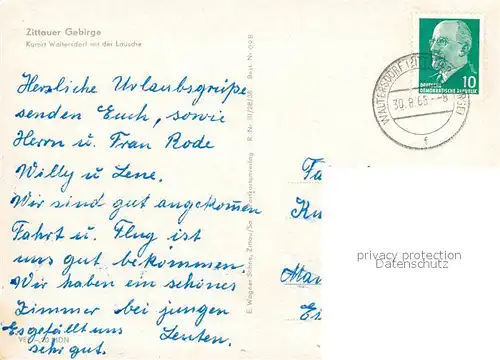 Zittauer Gebirge
Kurort Waltersdorf mit der Lausche
Herzliche Urlaubsgrüße
senden Euch, sowie
Herrn u. Frau Rode
Willy u. Lene.
Wir sind gut angekommen
Fahrt u. Flug ist
uns gut bekommen.
Wir haben ein schönes
Zimmer bei jungen
Leuten.
Es gefällt uns
sehr gut.
E. Wagner Söhne, Zittau/Sa. Postkartenverlag
R-Nr.
Best.-Nr.
10
DEUTSCHE
DEMOKRATISCHE REPUBLIK
WALTERSDORF
30.8.65
f
privacy protection
Datenschutz